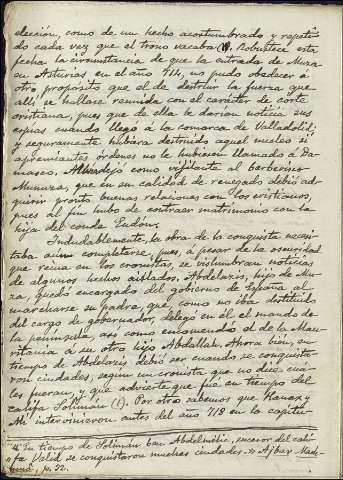 elección, como de un hecho acostumbrado y repeti-
do cada vez que el trono vacaba (1). Robustece esta
fecha la circunstancia de que la entrada de Muza
en Asturias en el año 714, no pudo obedecer á
otro propósito que el de destruir la fuerza que
allí se hallase reunida con el carácter de corte
cristiana, pues que de ella le darían noticia sus
espías cuando llegó á la comarca de Valladolid;
y seguramente hubiera destruído aquel núcleo si
apremiantes órdenes no le hubiesen llamado á Da-
masco. Allí dejó como vigilante al berberisco
Munuza, que en su calidad de renegado debió ad-
quirir pronto buenas relaciones con los cristianos,
pues al fin hubo de contraer matrimonio con la
hija del conde Eudón.
Indudablemente, la obra de la conquista necesi-
taba aún completarse, pues, á pesar de la oscuridad
que reina en los cronistas, se vislumbran noticias
de algunos hechos aislados. Abdelazis, hijo de Mu-
za, quedó encargado del gobierno de España al
marcharse su padre, que, como no iba destituído
del cargo de gobernador, delegó en él el mando de
la península, así como encomendó el de la Mau-
ritania á su otro hijo Abdallah. Ahora bien, en
tiempo de Abdelazis debió ser cuando se conquista-
ron ciudades, según un cronista que no dice cuá-
les fueran, y que advierte que fué en tiempo del
califa Solimán (1). Por otro sabemos que Hanax y
Alí intervinieron antes del año 718 en la capitu-
"En tiempo de Solimán ben Abdelmélic, sucesor del cali-
fa Valid se conquistaron muchas ciudades." Ajbar Mach-
muâ, p. 32.